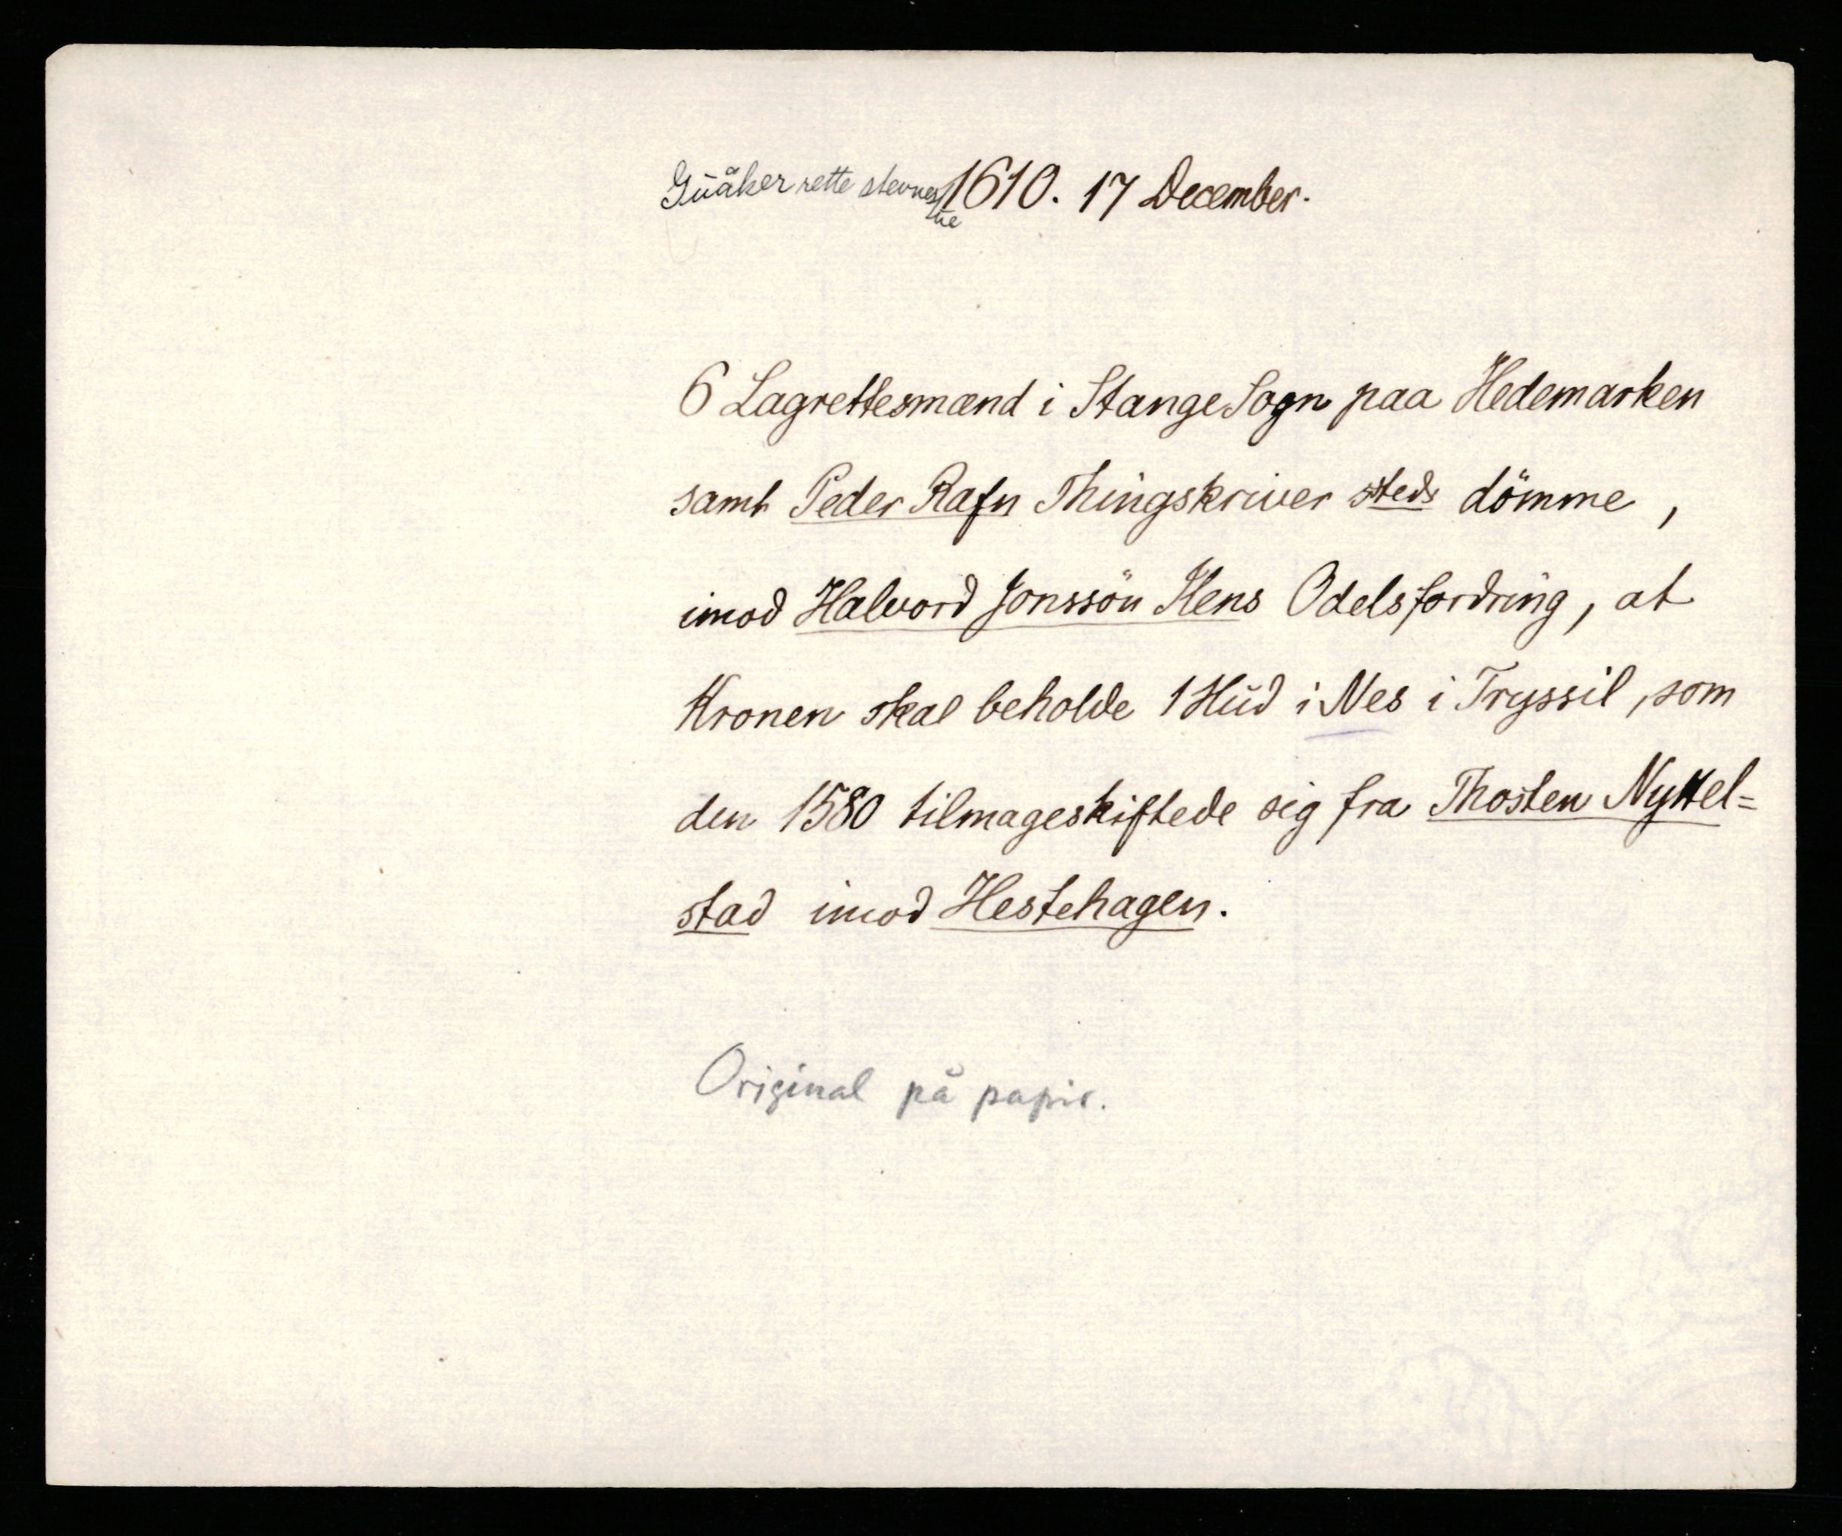 Guåker rette stevnestue 1610. 17 December.
6 Lagrettesmænd i Stange Sogn paa Hedemarken
samt Peder Rafn Thingskriver steds dömme,
imod Halvord Jonssön Kens Odelsfordring, at
Kronen skal beholde 1 Hud i Nes i Tryssil, som
den 1580 tilmageskiftede sig fra Thosten Nyttel=
stad imod Hestehagen.
Original på papir.